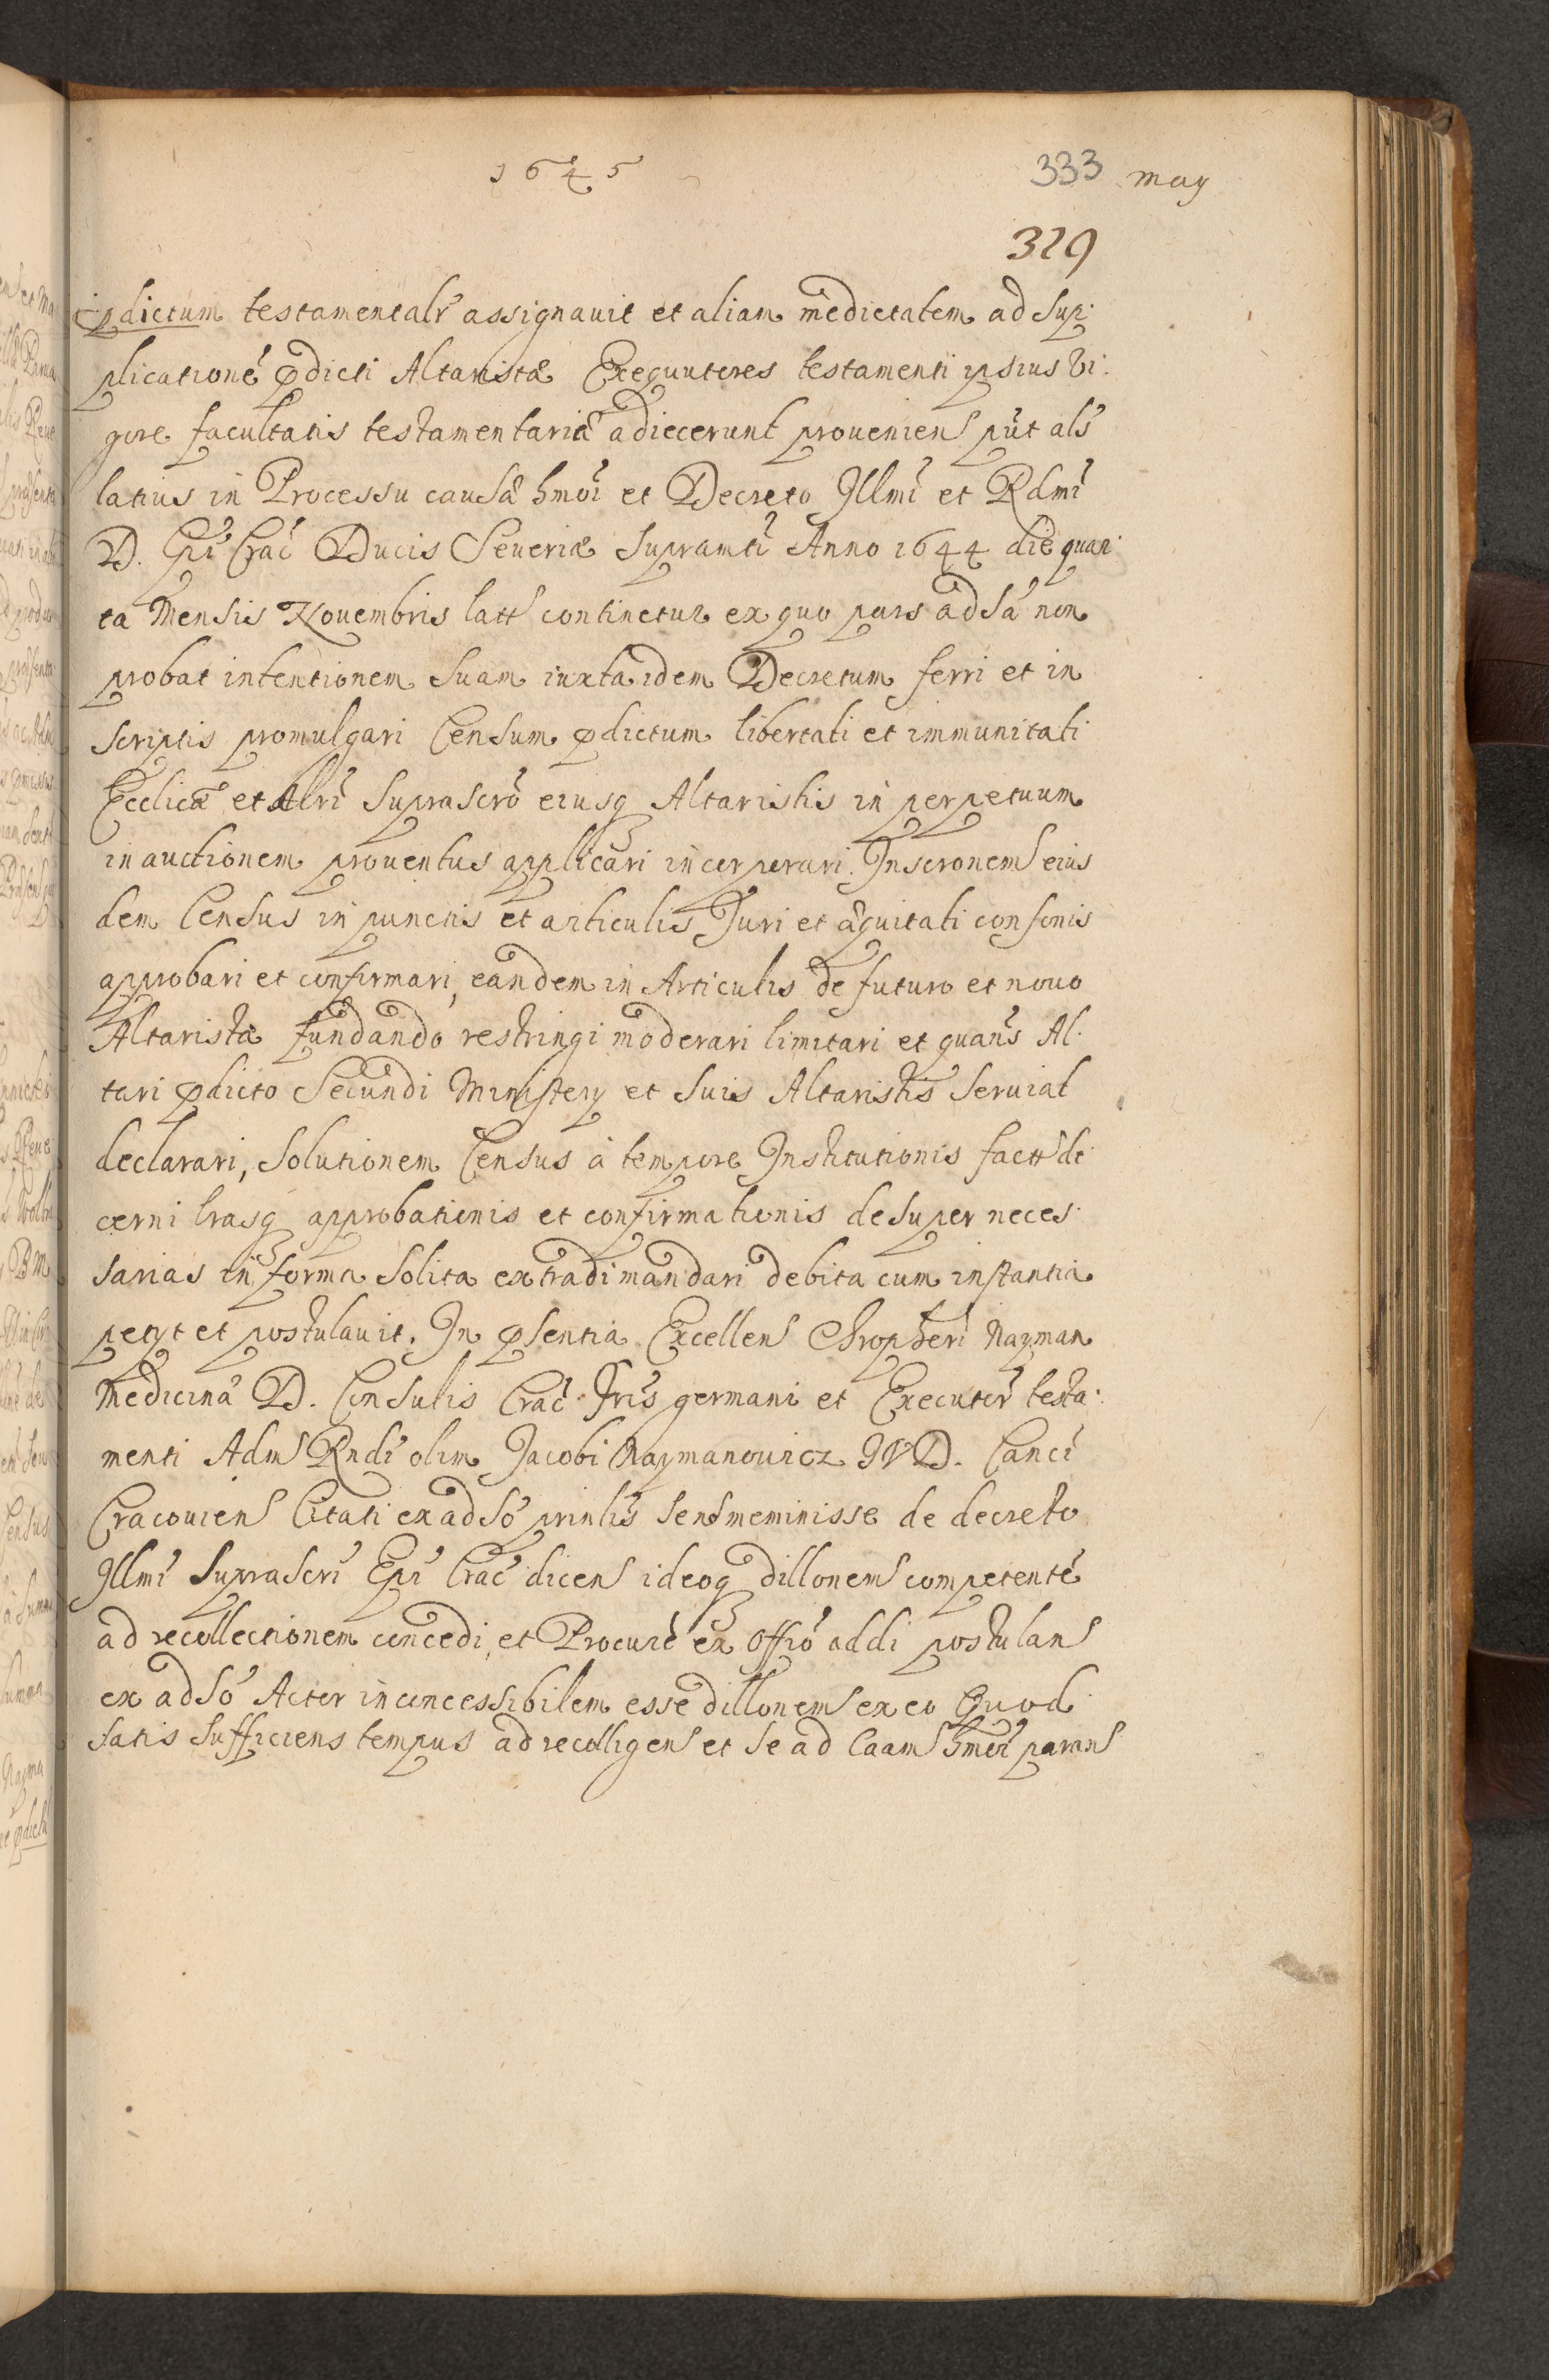 1645
333 may
329
pdictum testamentalr assignauit et aliam medietatem ad Sup:
plicationē pdicti Altaristæ Exequutores testamenti ipsius vi:
gore facultatis testamentariæ adiecerunt prouenien put als
latius in Processu causæ hmoi et Decreto Illmi et Rdmi
D. Epi Crac Ducis Seueriæ Supramti Anno 1644 die quar:
ta Mensis Nouembris latt continetur ex quo pars adsa non
probat intentionem Suam iuxta idem Decretum ferri et in
scriptis promulgari Censum pdictum libertati et immunitati
Ecclicæ et Alri Suprascro eiusq Altaristis in perpetuum
in auctionem prouentus applicari incorporari. Inscronem eius
dem Census in punctis et articulis Juri et æquitati consonis
approbari et confirmari, eandem in Articulis de futuro et nouo
Altarista fundando restringi moderari limitari et quans Al:
tari pdicto Secundi Ministery et Suis Altaristis Seruiat
declarari, Solutionem Census à tempore Institutionis fact de
cerni lrasq approbationis et confirmationis desuper neces:
sarias in forma Solita extradi mandari debita cum instantia
petyt et postulauit. In psentia Excellen Chropheri Nayman
Medicinæ D. Consulis Crac Fris germani et Executor testa:
menti Adm Rndi olim Jacobi Naymanowicz IVD. Canci
Cracouien Citati ex adso prinlis Send meminisse de decreto
Illmi Suprascri Epi Crac dicen ideoq dillonem competentē
ad recollectionem concedi, et Procurē ex Offio addi postulan
ex adso Actor inconcessibilem esse dillonem ex eo Quod
satis Sufficiens tempus ad recolligen et Se ad Caam hmoi paran